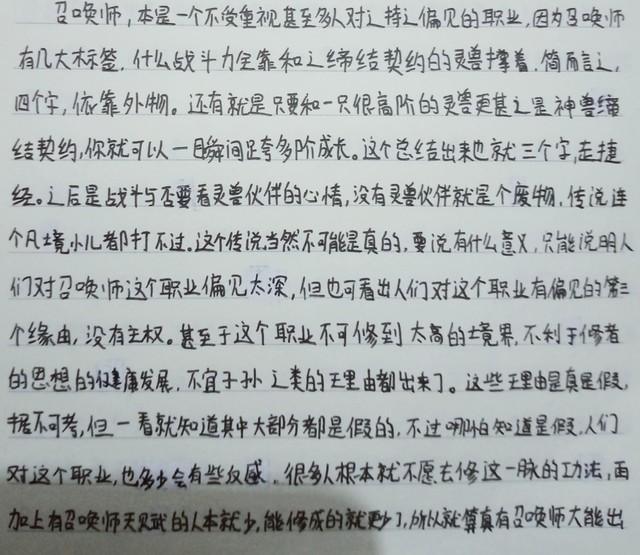 召唤师，本是一个不受重视甚至多人对之持之偏见的职业，因为召唤师
有几大标签，什么战斗力全靠和之缔结契约的灵兽撑着，简而言之，
四个字，依靠外物。还有就是只要和一只很高阶的灵兽更甚之是神兽缔
结契约，你就可以一瞬间跨多阶成长。这个总结出来也就三个字，走捷
径。之后是战斗与否要看灵兽伙伴的心情，没有灵兽伙伴就是个废物，传说连
个凡境小儿都打不过。这个传说当然不可能是真的，要说有什么意义，只能说明人
们对召唤师这个职业偏见太深，但也可看出人们对这个职业有偏见的第三
个缘由，没有主权。甚至于这个职业不可修到太高的境界，不利于修者
的思想的健康发展，不宜子孙之类的理由都出来了。这些理由是真是假，
据不可考，但一看就知道其中大部分都是假的，不过哪怕知道是假，人们
对这个职业，也多少会有些反感，很多人根本就不愿去修这一脉的功法，再
加上有召唤师天赋的人本就少，能修成的就更少了，所以就算真有召唤师大能出